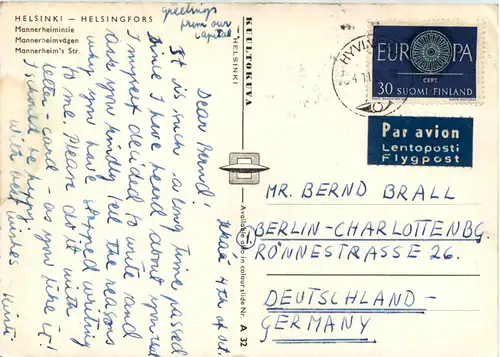 HELSINKI — HELSINGFORS
Mannerheimintie
Mannerheimvägen
Mannerheim's Str.
greetings
from our
capital
KUULTOKUVA
HELSINKI
Available also in colour slide Nr. A 32
Dear Bernd!
4th of Oct.
It is such a long time passed
since I have heard about you that
I myself decided to write and
ask you kindly tell the reasons
why you have stopped writing
to me. Please do it with
letter - card - as you like it!
I should be happy.
With best wishes
HYVIN
EUROPA
CEPT
30 SUOMI-FINLAND
Par avion
Lentoposti
Flygpost
MR. BERND BRALL
BERLIN-CHARLOTTENBG.
RÖNNESTRASSE 26.
DEUTSCHLAND-
GERMANY.